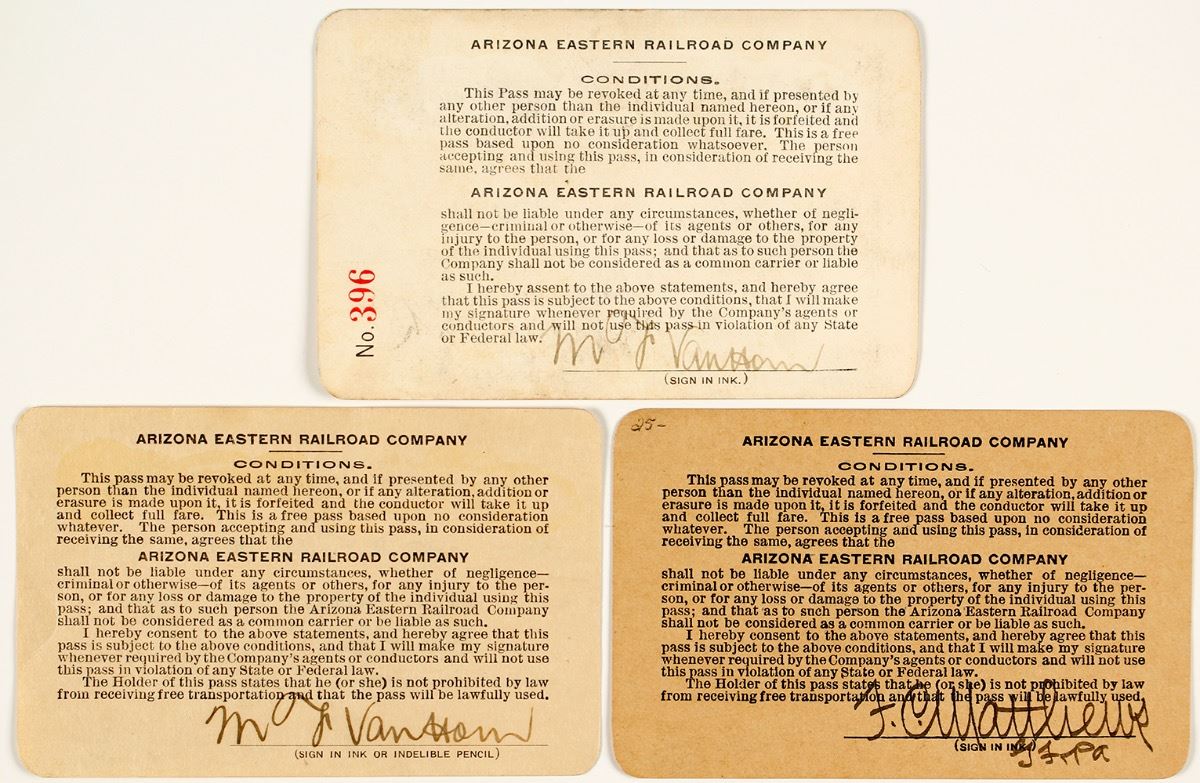 ARIZONA EASTERN RAILROAD COMPANY
CONDITIONS.
This Pass may be revoked at any time, and if presented by
any other person than the individual named hereon, or if any
alteration, addition or erasure is made upon it, it is forfeited and
the conductor will take it up and collect full fare. This is a free
pass based upon no consideration whatsoever. The person
accepting and using this pass, in consideration of receiving the
same, agrees that the
ARIZONA EASTERN RAILROAD COMPANY
shall not be liable under any circumstances, whether of negli-
gence—criminal or otherwise—of its agents or others, for any
injury to the person, or for any loss or damage to the property
of the individual using this pass; and that as to such person the
Company shall not be considered as a common carrier or liable
as such.
I hereby assent to the above statements, and hereby agree
that this pass is subject to the above conditions, that I will make
my signature whenever required by the Company's agents or
conductors and will not use this pass in violation of any State
or Federal law.
M F VanHorn
(SIGN IN INK.)
No. 396
ARIZONA EASTERN RAILROAD COMPANY
CONDITIONS.
This pass may be revoked at any time, and if presented by any other
person than the individual named hereon, or if any alteration, addition or
erasure is made upon it, it is forfeited and the conductor will take it up
and collect full fare. This is a free pass based upon no consideration
whatever. The person accepting and using this pass, in consideration of
receiving the same, agrees that the
ARIZONA EASTERN RAILROAD COMPANY
shall not be liable under any circumstances, whether of negligence—
criminal or otherwise—of its agents or others, for any injury to the per-
son, or for any loss or damage to the property of the individual using this
pass; and that as to such person the Arizona Eastern Railroad Company
shall not be considered as a common carrier or be liable as such.
I hereby consent to the above statements, and hereby agree that this
pass is subject to the above conditions, and that I will make my signature
whenever required by the Company's agents or conductors and will not use
this pass in violation of any State or Federal law.
The Holder of this pass states that he (or she) is not prohibited by law
from receiving free transportation and that the pass will be lawfully used.
M F VanHorn
(SIGN IN INK OR INDELIBLE PENCIL)
25-
ARIZONA EASTERN RAILROAD COMPANY
CONDITIONS.
This pass may be revoked at any time, and if presented by any other
person than the individual named hereon, or if any alteration, addition or
erasure is made upon it, it is forfeited and the conductor will take it up
and collect full fare. This is a free pass based upon no consideration
whatever. The person accepting and using this pass, in consideration of
receiving the same, agrees that the
ARIZONA EASTERN RAILROAD COMPANY
shall not be liable under any circumstances, whether of negligence—
criminal or otherwise—of its agents or others, for any injury to the per-
son, or for any loss or damage to the property of the individual using this
pass; and that as to such person the Arizona Eastern Railroad Company
shall not be considered as a common carrier or be liable as such.
I hereby consent to the above statements, and hereby agree that this
pass is subject to the above conditions, and that I will make my signature
whenever required by the Company's agents or conductors and will not use
this pass in violation of any State or Federal law.
The Holder of this pass states that he (or she) is not prohibited by law
from receiving free transportation and that the pass will be lawfully used.
F. C Matthews
(SIGN IN INK)